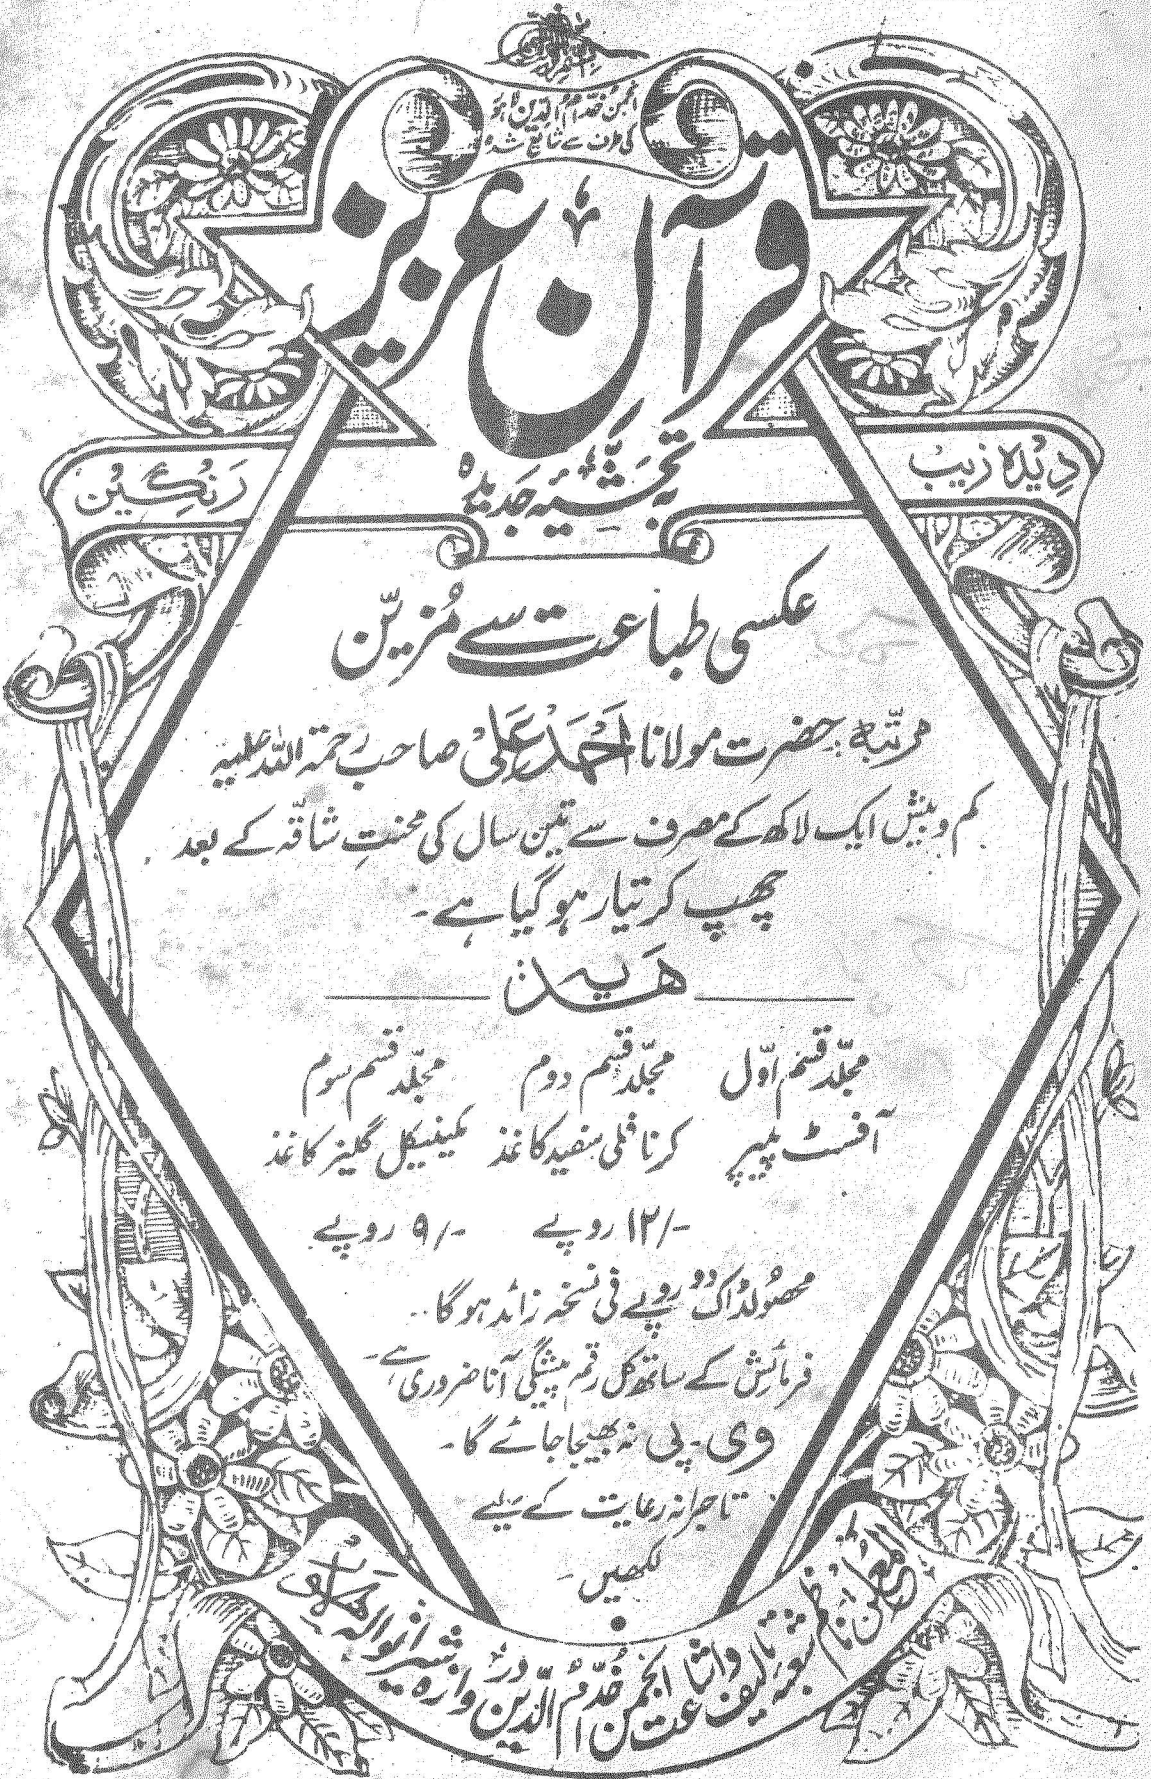 انجمن خدّام الدین لاہور
کی طرف سے شائع شدہ
قرآن عزیز
بہ تحشیۂ جدیدہ
دِیْدہ زیبْ
رَنگیْن
عکسی طباعت سے مُزیّن
مرتبہ: حضرت مولانا اَحْمَدْ عَلِیْ صاحب رحمۃ اللہ علیہ
کم و بیش ایک لاکھ کے مصرف سے تین سال کی محنتِ شاقّہ کے بعد
چھپ کر تیار ہو گیا ہے۔
ھَدیہ
مجلّد قسم اوّل مجلّد قسم دوم مجلّد قسم سوم
آفسٹ پیپر کرنافلی سفید کاغذ مکینیکل گلیز کاغذ
۱۲/- روپے ۹/- روپے
محصُولڈاک دو روپے فی نسخہ زائد ہو گا۔
فرمائش کے ساتھ کل رقم پیشگی آنا ضروری ہے۔
وی۔پی نہ بھیجا جائے گا۔
تاجرانہ رعایت کے لیے
لکھیں۔
المعلن ناظم شعبہ تالیف و اشاعت انجمن خُدّام الدّین دروازہ شیرانوالہ لاہور